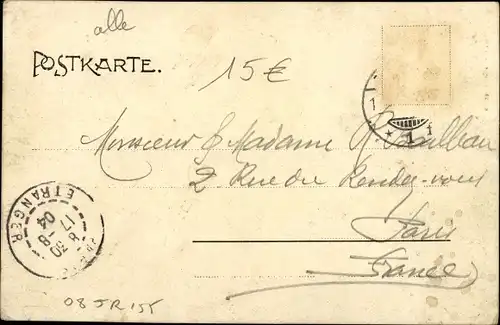 alle
POSTKARTE.
15€
1
* 1 1
Monsieur & Madame
2 Rue du Rendez-vous
Paris
France
ETRANGER
17 -8
04
08 JR 155